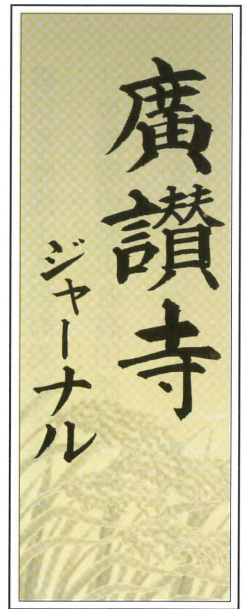 廣讃寺
ジャーナル